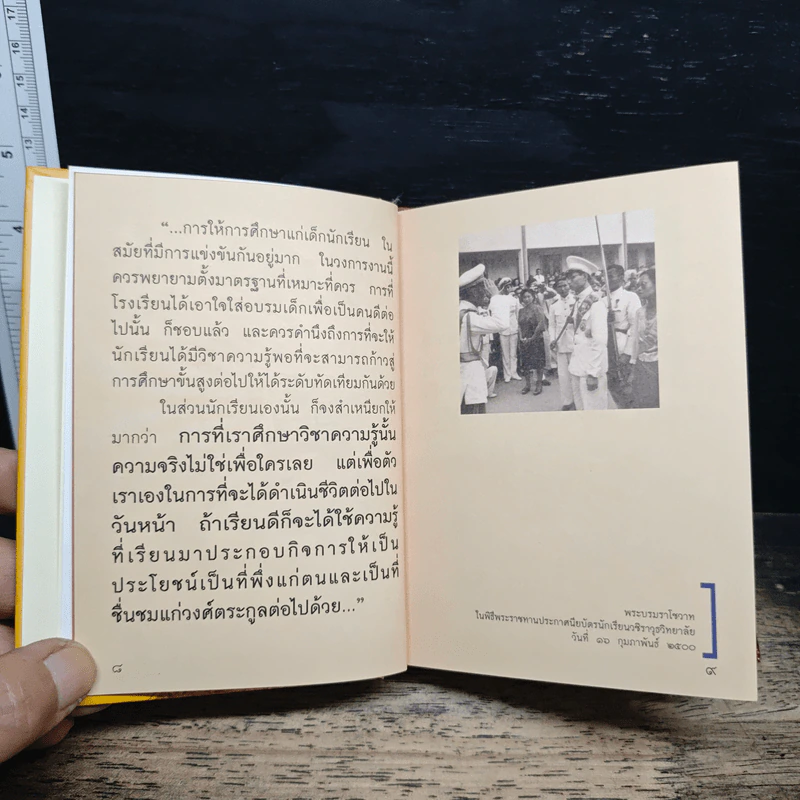 “...การให้การศึกษาแก่เด็กนักเรียน ใน
สมัยที่มีการแข่งขันกันอยู่มาก ในวงการงานนี้
ควรพยายามตั้งมาตรฐานที่เหมาะที่ควร การที่
โรงเรียนได้เอาใจใส่อบรมเด็กเพื่อเป็นคนดีต่อ
ไปนั้น ก็ชอบแล้ว และควรคำนึงถึงการที่จะให้
นักเรียนได้มีวิชาความรู้พอที่จะสามารถก้าวสู่
การศึกษาขั้นสูงต่อไปให้ได้ระดับทัดเทียมกันด้วย
ในส่วนนักเรียนเองนั้น ก็จงสำเหนียกให้
มากว่า การที่เราศึกษาวิชาความรู้นั้น
ความจริงไม่ใช่เพื่อใครเลย แต่เพื่อตัว
เราเองในการที่จะได้ดำเนินชีวิตต่อไปใน
วันหน้า ถ้าเรียนดีก็จะได้ใช้ความรู้
ที่เรียนมาประกอบกิจการให้เป็น
ประโยชน์เป็นที่พึ่งแก่ตนและเป็นที่
ชื่นชมแก่วงศ์ตระกูลต่อไปด้วย...”
๘
พระบรมราโชวาท
ในพิธีพระราชทานประกาศนียบัตรนักเรียนวชิราวุธวิทยาลัย
วันที่ ๑๖ กุมภาพันธ์ ๒๕๐๐
๙
17
16
15
14
13
12
11
10
5
4